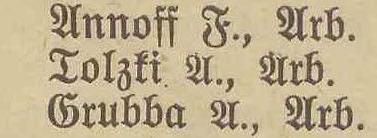 Annoff F., Arb.
Tolzki A., Arb.
Grubba A., Arb.